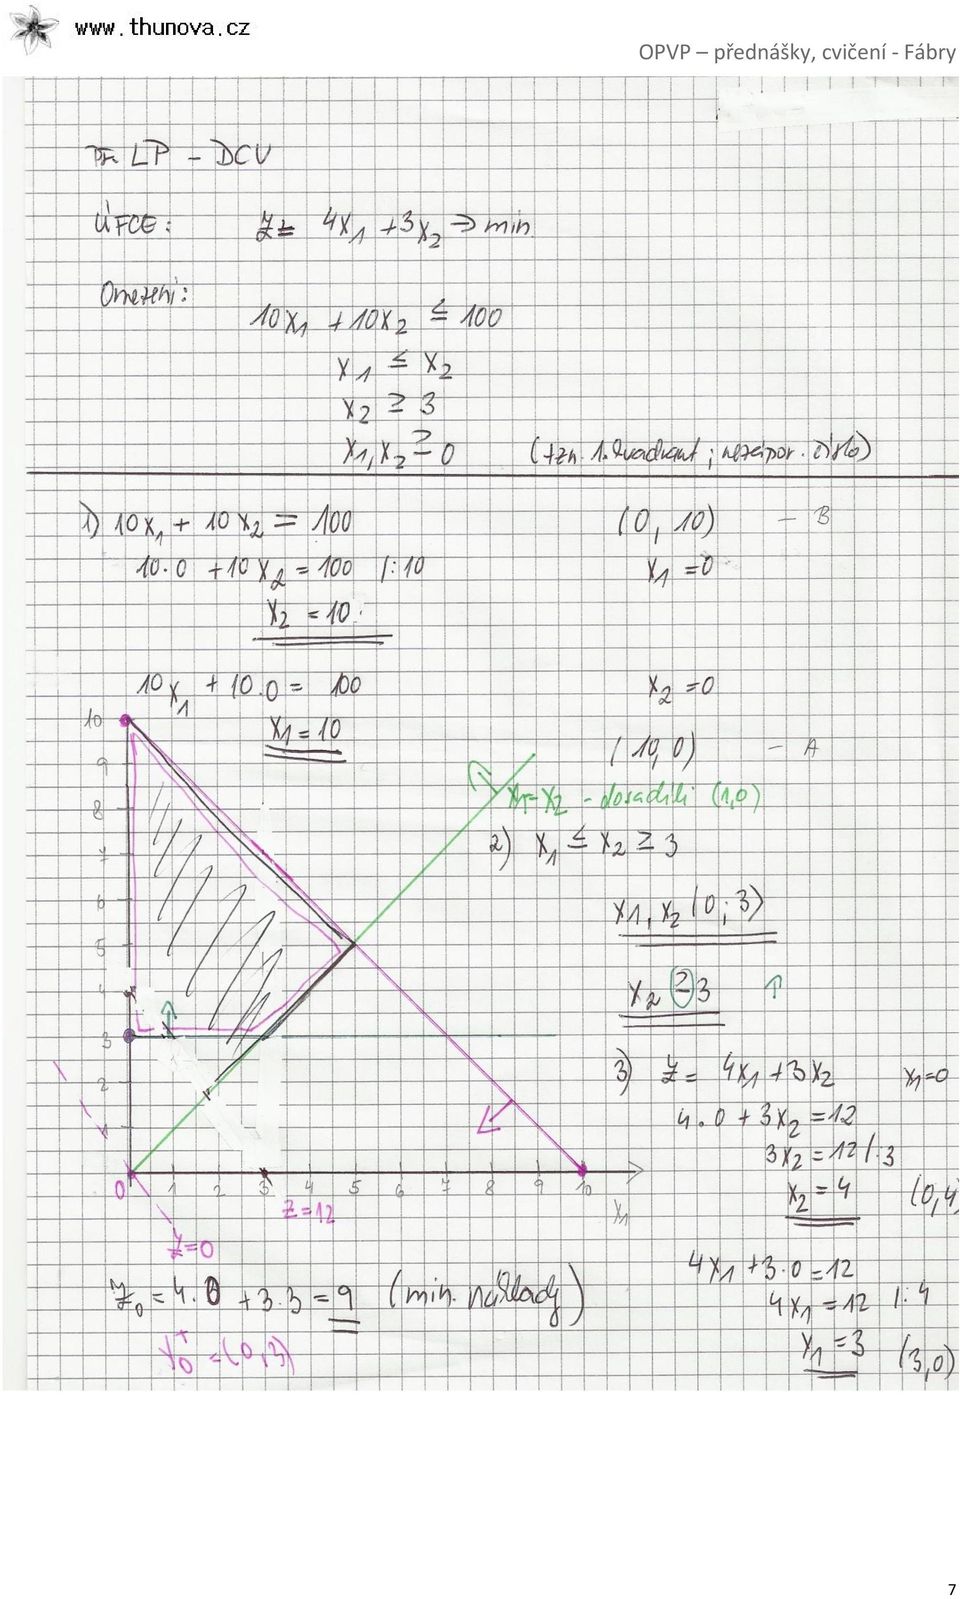 www.thunova.cz
OPVP – přednášky, cvičení - Fábry
Př. LP – DCV
ÚFCE: z = 4x₁ + 3x₂ ⇒ min.
Omezení:
10x₁ + 10x₂ ≤ 100
x₁ ≤ x₂
x₂ ≥ 3
x₁, x₂ ≥ 0 (tzn. 1. kvadrant; nezápor. číslo)
1) 10x₁ + 10x₂ = 100 (0, 10) – B
10·0 + 10x₂ = 100 /:10 x₁ = 0
x₂ = 10
10x₁ + 10·0 = 100 x₂ = 0
x₁ = 10 (10, 0) – A
x₁=x₂ - dosadili (1,0)
2) x₁ ≤ x₂ ≥ 3
x₁, x₂ (0; 3)
x₂ ≥ 3 ↑
3) z = 4x₁ + 3x₂ x₁=0
4·0 + 3x₂ = 12
3x₂ = 12 /:3
x₂ = 4 (0,4)
4x₁ + 3·0 = 12
4x₁ = 12 /:4
x₁ = 3 (3,0)
10
9
8
7
6
5
4
3
2
0 1 2 3 4 5 6 7 8 9 10
x₁
z=12
z=0
z₀ = 4·0 + 3·3 = 9 (min. náklady)
x₀⁺ = (0,3)
7